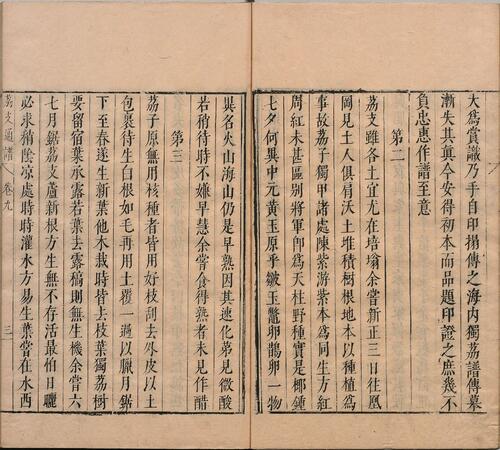 大為賞識乃手自印搨傳之海内獨荔譜傳摹
漸失其真今安得初本而品題印證之庶幾不
負忠惠作譜至意
第二
荔支雖各土宜尤在培壅余嘗新正三日往鳳
岡見土人俱肩沃土堆積樹根地本以種植為
事故荔子獨甲諸處陳紫游紫本為同生方紅
周紅未甚區别將軍即為天柱野種實是椰鍾
七夕何異中元黄玉原乎皺玉鼈卵鵲卵一物
異名火山海山仍是早熟因其速化第見微酸
若稍待時不嫌早慧余嘗食得熟者未見作醋
第三
荔子原無用核種者皆用好枝刮去外皮以土
包裹待生白根如毛再用土覆一過以臘月鋸
下至春遂生新葉他木栽時皆去枝葉獨荔樹
要留宿葉承露若葉去露稿則無生機余嘗六
七月鋸荔支蘆新根方生無不存活最怕日曬
必求稍陰凉處時時灌水方易生葉嘗在水西
荔支通譜 卷九 三